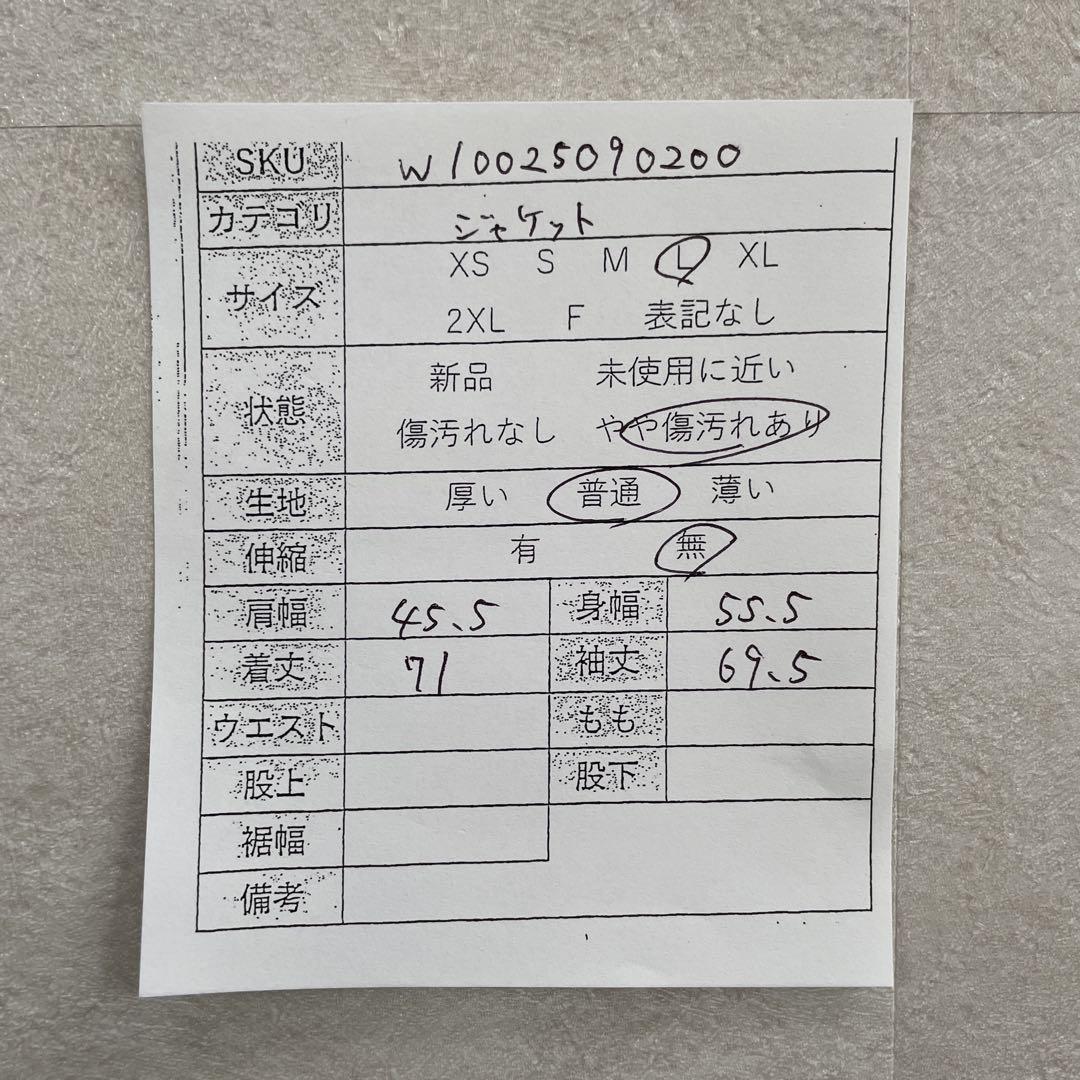 SKU W10025090200
カテゴリ ジャケット
サイズ XS S M L XL
2XL F 表記なし
状態 新品 未使用に近い
傷汚れなし やや傷汚れあり
生地 厚い 普通 薄い
伸縮 有 無
肩幅 45.5 身幅 55.5
着丈 71 袖丈 69.5
ウエスト もも
股上 股下
裾幅
備考